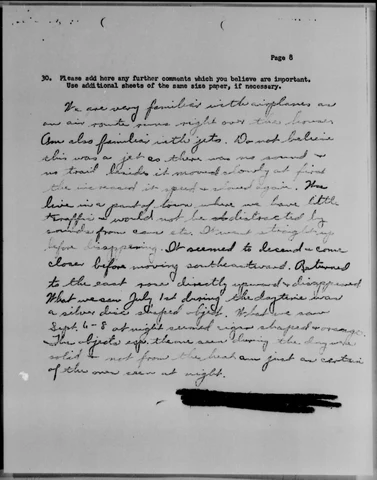 Page 8
30. Please add here any further comments which you believe are important.
Use additional sheets of the same size paper, if necessary.
We are very familiar with airplanes as
an air route runs right over the house
Am also familiar with jets. Do not believe
this was a jet as there was no sound &
no trail besides it moved slowly at first
then increased its speed & slowed again. We
live in a part of town where we have little
traffic & would not be distracted by
sounds from cars etc. It went straight up
before disappearing. It seemed to descend & come
closer before moving southeastward. Returned
to the east rose directly upward & disappeared
What we seen July 1st during the daytime was
a silver disc shaped object. What we saw
Sept. 6-8 at night seemed cigar shaped & orange.
The objects seen during the day were
solid & not from the heat am just as certain
of the ones seen at night.